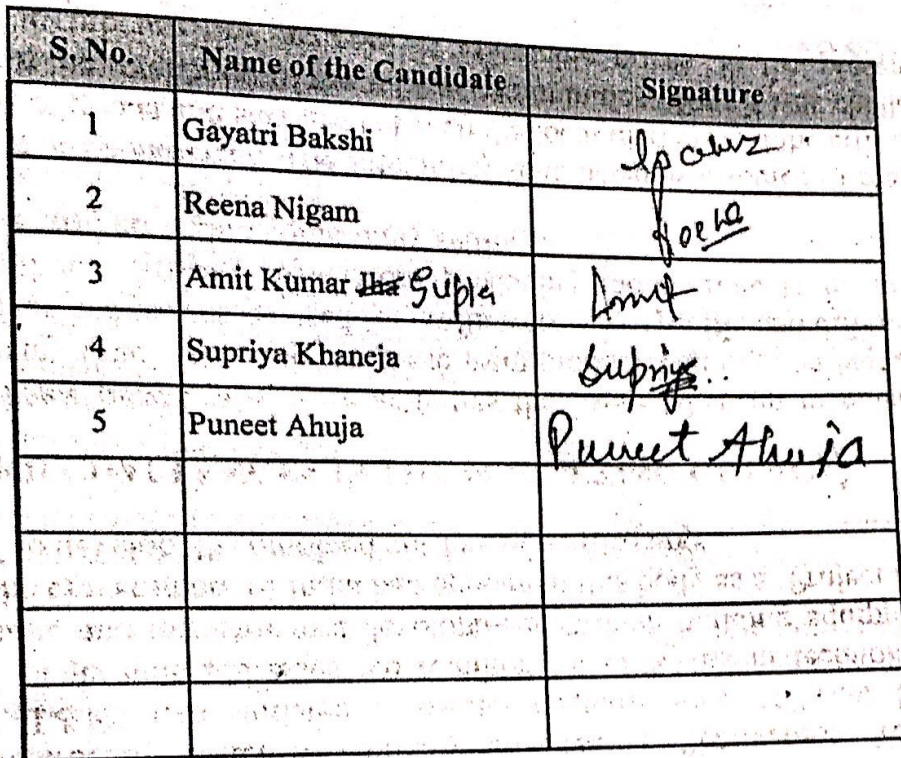 S. No. Name of the Candidate Signature
1 Gayatri Bakshi
2 Reena Nigam
3 Amit Kumar Jha Gupta Amit
4 Supriya Khaneja Supriya..
5 Puneet Ahuja Puneet Ahuja